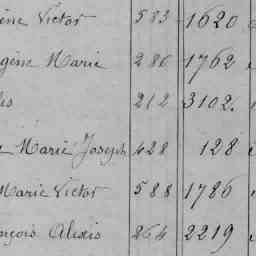 ène Victor 583 1620
gène Marie 286 1762
is 212 3102.
Marie Joseph 428 128
Marie Victor 588 1786
nçois Alexis 264 2219